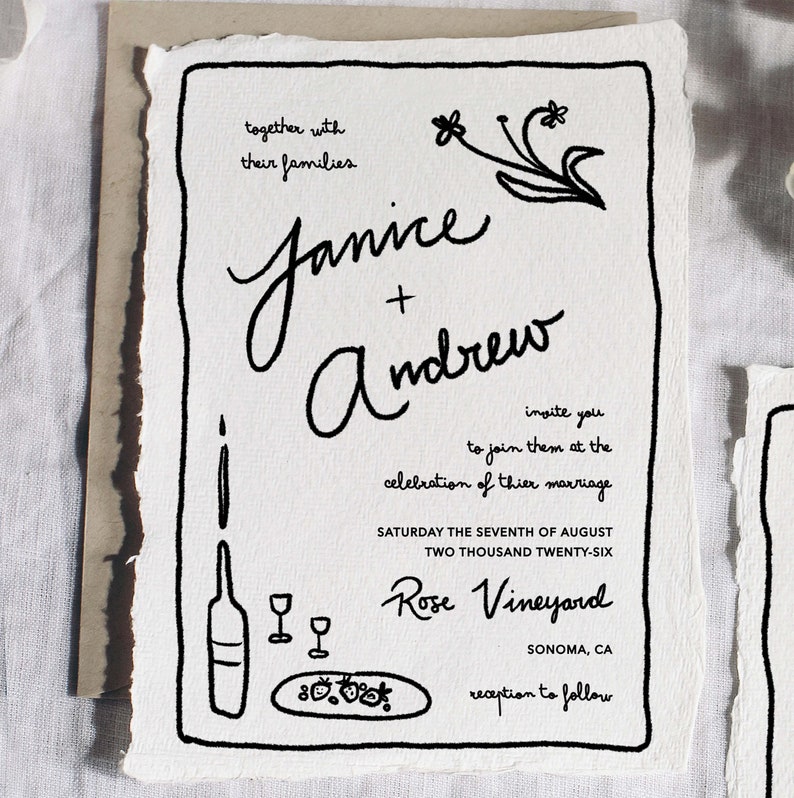 together with
their families
Janice
+
Andrew
invite you
to join them at the
celebration of thier marriage
SATURDAY THE SEVENTH OF AUGUST
TWO THOUSAND TWENTY-SIX
Rose Vineyard
SONOMA, CA
reception to follow